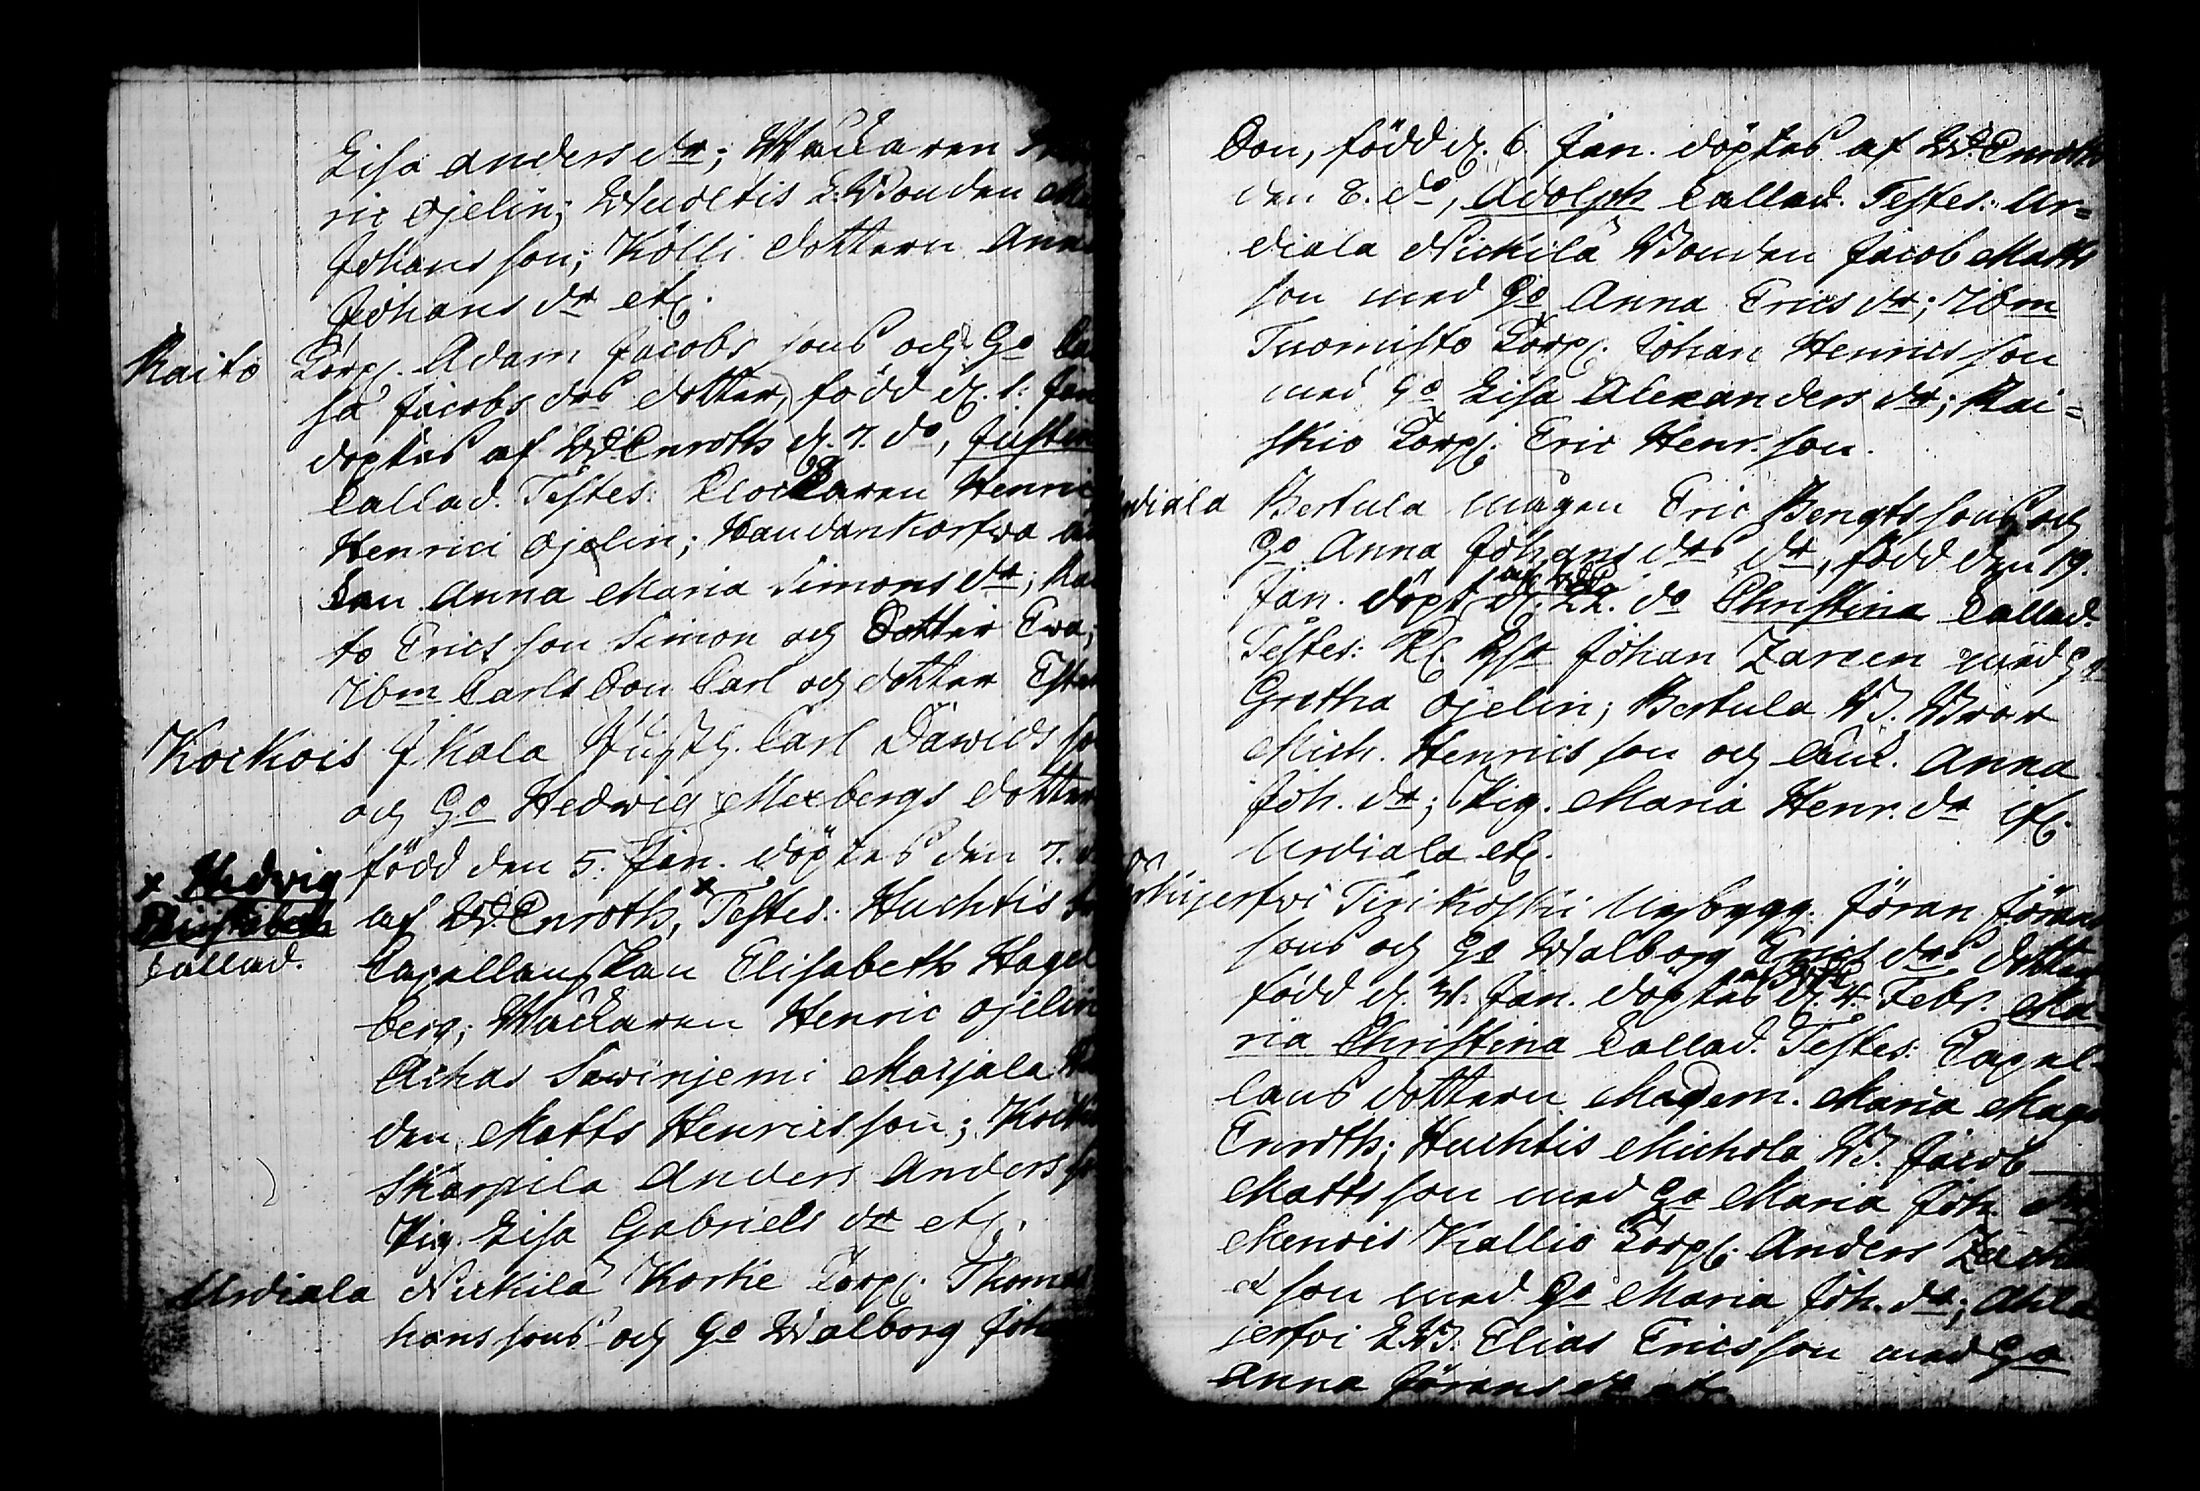 Lisa Anders dr; Wäckaren
ric Ojelin; Bonden
Johans son; Kölli dottern Anna
Johans dr etc.
Raito Torp. Adam Jacobs sons och Ho
sa Jacobs drs dotter, född d. 1. Jan
döptes af Vd. Enroth d. 7. do, Justin
kallad. Testes: Clockaren Henric
Henrici Ojelin; Haudankorfwa
kan Anna Maria Simons dr; Rai
to Erics son Simon och Dotter Eva;
ibm Carls Son Carl och dotter Ester
Kockois Ikala Carl Dawids so
och Ho Hedwig Mexbergs dotter
född den 5. Jan. döptes den 7.
x Hedwig
Elisabeth
kallad.
af Vd. Enroth, x Testes: Huchtis
Capellanskan Elisabeth Hagel
berg; Wäckaren Henric Ojelin
Achas Sawinjemi Maijala
den Matts Henrics son; Kocko
Skarpila Anders Anders so
Pig. Lisa Gabriels dr etc.
Urdiala Nickilä Korke Torp. Thomas
hans sons och Ho Walborg Joha
Son, född d. 6. Jan. döptes af Vd. Enroth
den 8. do, Adolph kallad. Testes: Ur=
diala Nickilä Bonden Jacob Matts
son med Ho Anna Erics dr; ibm
Tuomisto Torp. Johan Henrics son
med Ho Lisa Alexanders dr; Rai=
skio Torp. Eric Henr. son.
diala Bertula mågen Eric Bengts sons och
Ho Anna Johans drs dr, född den 19.
Jan. döpt d. 22. do Christina kallad.
Testes: Johan Zareen med Ho
Gretha Ojelin; Bertula B. Bror
Mich. Henrics son och Anna
Joh. dr; Pig. Maria Henr. dr
Urdiala etc.
Tizikoski Nybygg. Jöran Jörans
sons och Ho Walborg Erics drs dotter
född d. 31. Jan. döptes d. 4. Febr. Ma-
ria Christina kallad. Testes: Capel-
lans dottern Madem. Maria Magd
Enroth; Huchtis Michola B. Jacob
Matts son med Ho Maria Joh. dr
Menois Kallio Torp. Anders Zachri
son med Ho Maria Joh. dr; Ahla
jerfvi Elias Erics son med Ho
Anna Jörans dr etc.